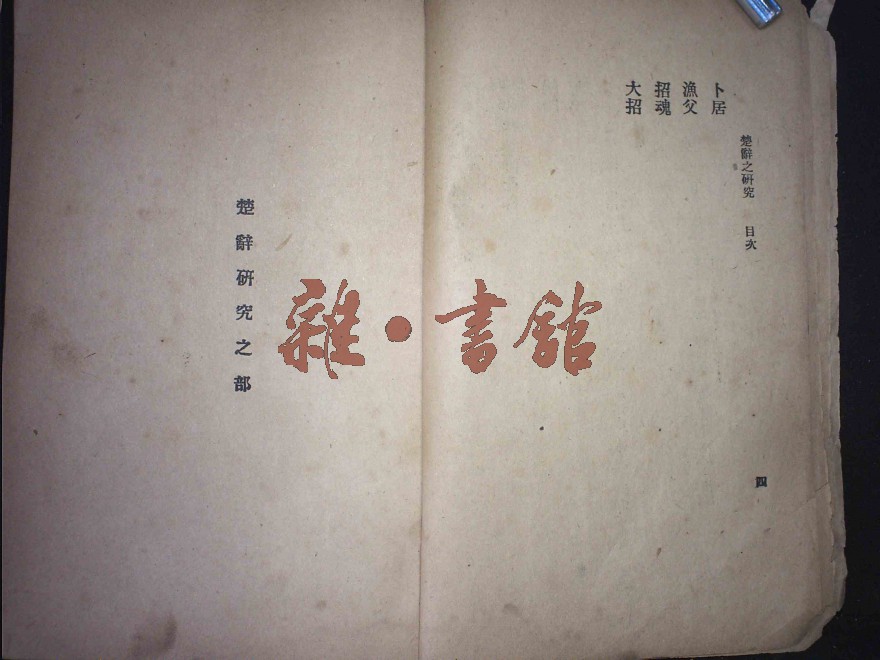 卜居
漁父
招魂
大招
楚辭之研究 目次
四
楚辭研究之部
雜·書館